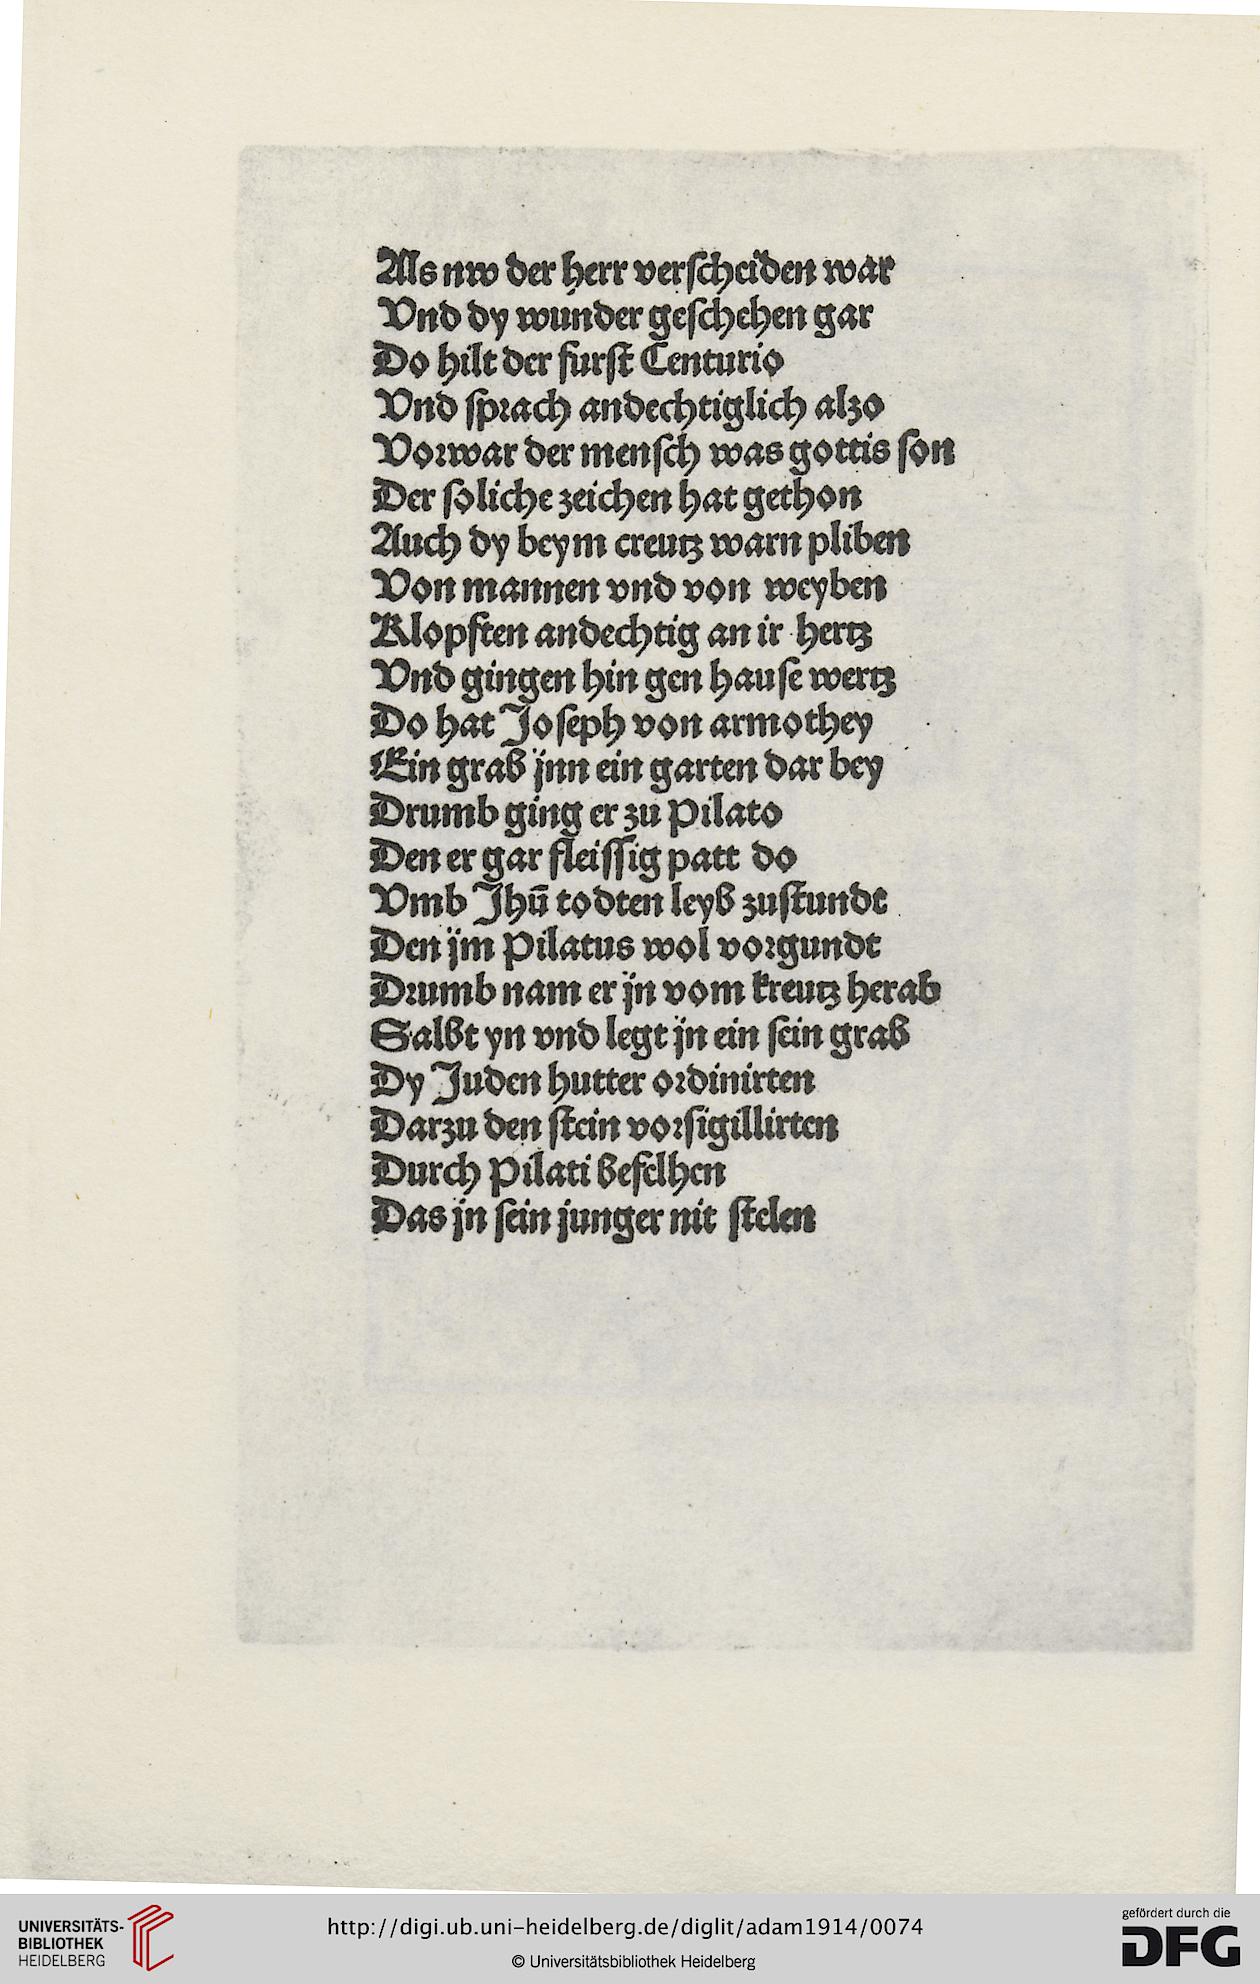 Als nw der herr verſcheiden war
Vnd dy wunder geſchehen gar
Do hilt der furſt Centurio
Vnd ſprach andechtiglich alzo
Vorwar der menſch was gottis ſon
Der ſoliche zeichen hat gethon
Auch dy beym creutz warn pliben
Von mannen vnd von weyben
Klopften andechtig an ir hertz
Vnd gingen hin gen hauſe wertz
Do hat Joſeph von armothey
Ein grab jnn ein garten dar bey
Drumb ging er zu Pilato
Den er gar fleiſſig patt do
Vmb Jhū todten leyb zuſtundt
Den jm Pilatus wol vorgundt
Drumb nam er jn vom kreutz herab
Salbt yn vnd legt jn ein ſein grab
Dy Juden hutter ordinirten
Darzu den ſtein vorſigillirten
Durch Pilati befelhen
Das jn ſein junger nit ſtelen
UNIVERSITÄTS-
BIBLIOTHEK
HEIDELBERG
http://digi.ub.uni-heidelberg.de/diglit/adam1914/0074
© Universitätsbibliothek Heidelberg
gefördert durch die
DFG